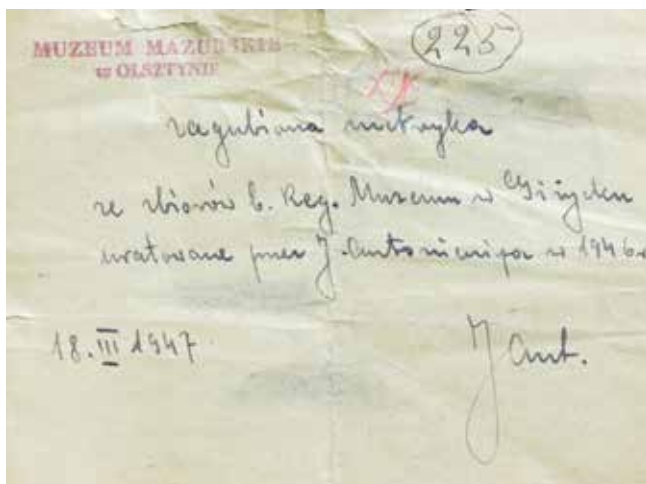 MUZEUM MAZURSKIE
w OLSZTYNIE
225
zagubiona metryka
ze zbiorów b. Reg. Muzeum w Giżycku
uratowane przez J. Antoniewicza w 1946 r
18. III 1947
J Ant.